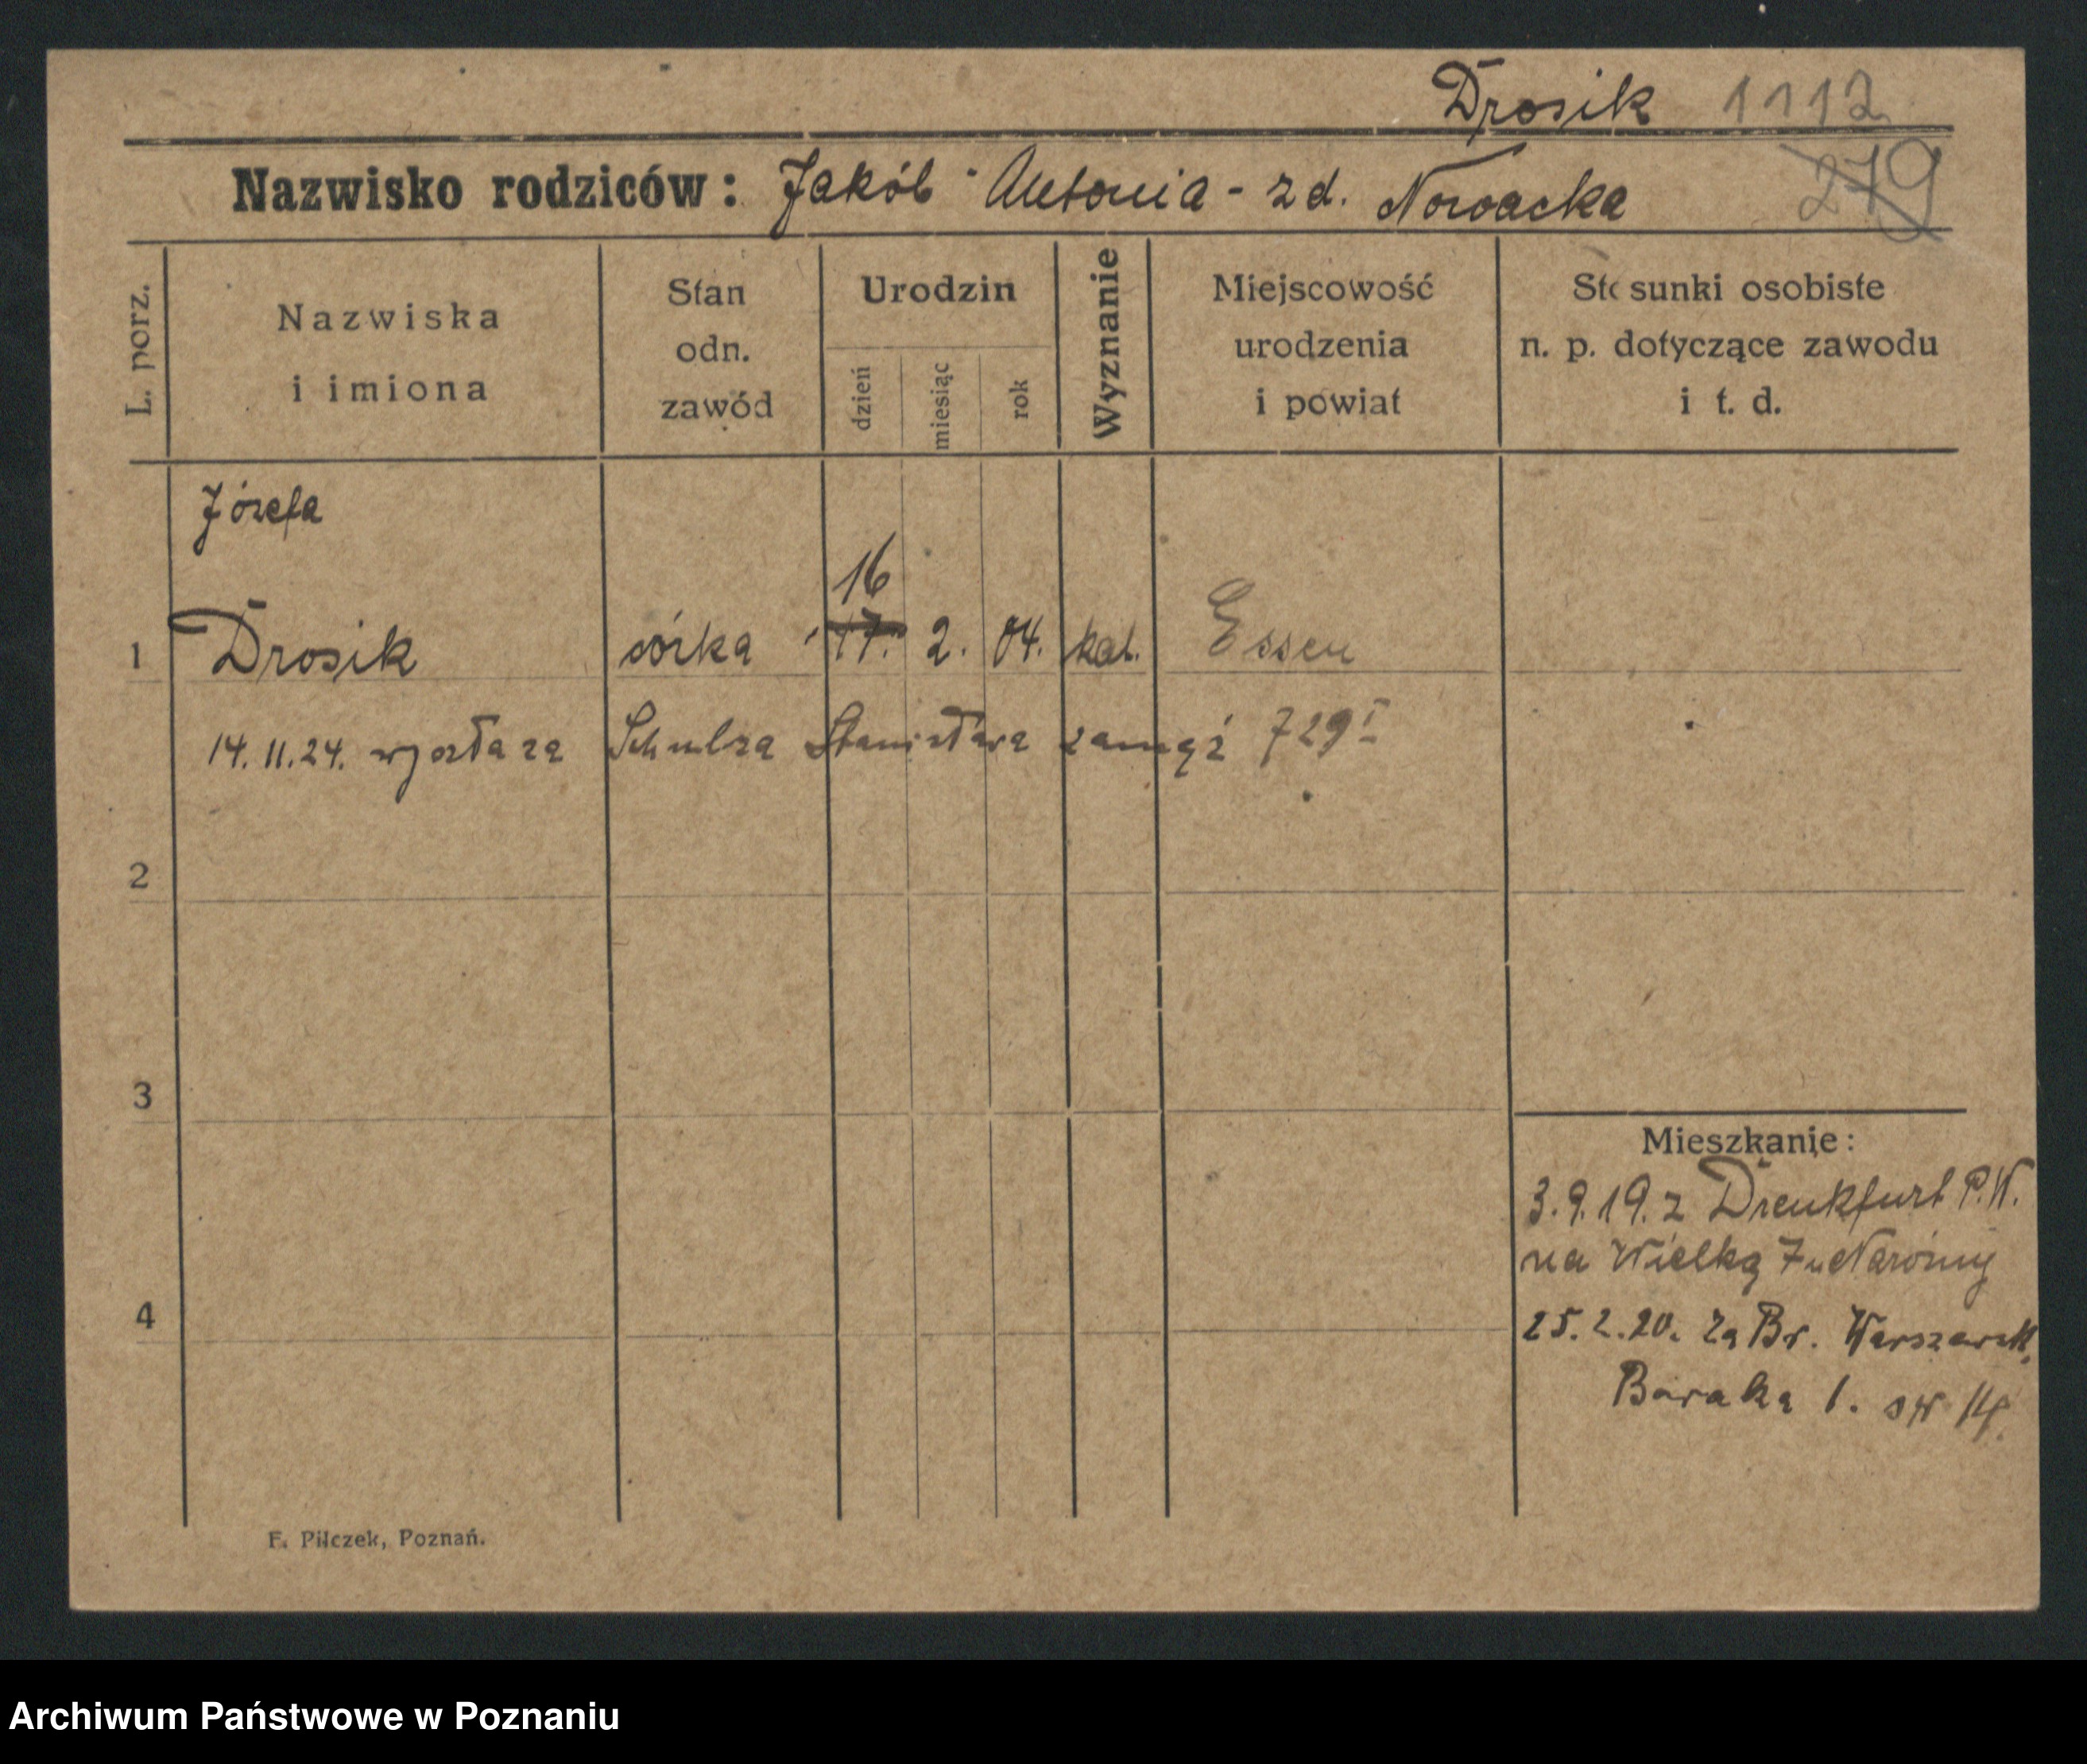 Drosik 1112
Nazwisko rodziców: Jakób - Antonia - zd. Nowacka 279
L. porz.
Nazwiska
i imiona
Stan
odn.
zawód
Urodzin
dzień
miesiąc
rok
Wyznanie
Miejscowość
urodzenia
i powiat
Stosunki osobiste
n. p. dotyczące zawodu
i t. d.
Józefa
16
1 Drosik córka 17. 2. 04. kat. Essen
14.11.24. wyszła za Schulza Stanisława zamąż 729 I
2
3
Mieszkanie:
3.9.19. z Drenkfurt P.W.
na Wielką 7 u Narożny
4
25.2.20. Za Br. Warszawsk.
Baraka 1. 14.
F. Pilczek, Poznań.
Archiwum Państwowe w Poznaniu